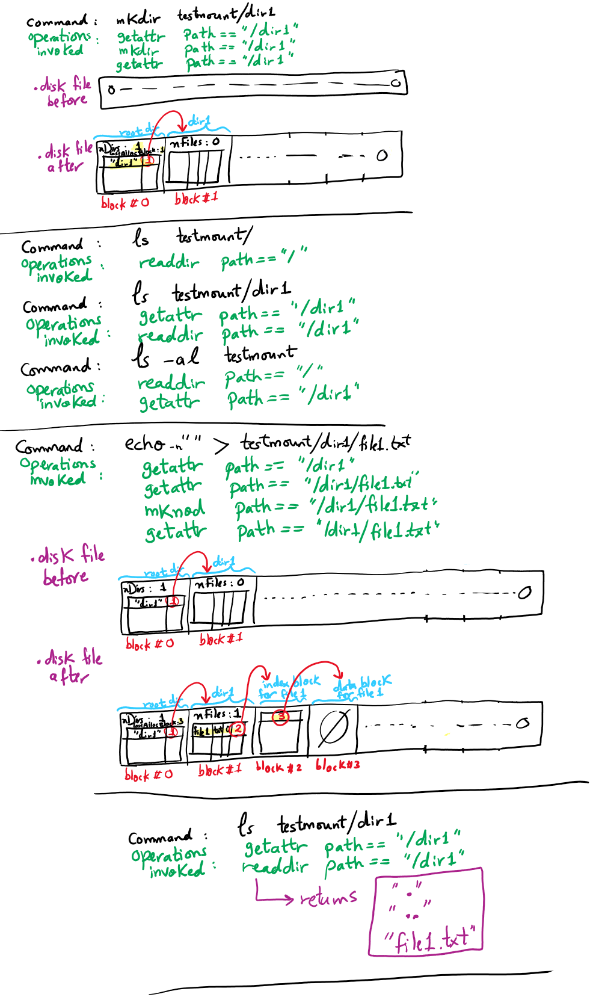 Command : mkdir testmount/dir1
operations invoked : getattr path == "/dir1"
mkdir path == "/dir1"
getattr path == "/dir1"
.disk file before
0 0
root dir dir1
.disk file after
nDirs : 1 nFiles : 0
"dir1" 1
0
block # 0 block # 1
Command : ls testmount/
operations invoked : readdir path == "/"
Command : ls testmount/dir1
operations invoked : getattr path == "/dir1"
readdir path == "/dir1"
Command : ls -al testmount
operations invoked : readdir path == "/"
getattr path == "/dir1"
Command : echo -n "" > testmount/dir1/file1.txt
operations invoked : getattr path == "/dir1"
getattr path == "/dir1/file1.txt"
mknod path == "/dir1/file1.txt"
getattr path == "/dir1/file1.txt"
.disk file before
root dir dir1
nDirs : 1 nFiles : 0
"dir1" 1
0
block # 0 block # 1
.disk file after
root dir dir1 index block for file1 data block for file1
nDirs : 1 nFiles : 1
"dir1" 1 file1 txt 0 2 3
0
block # 0 block # 1 block # 2 block # 3
Command : ls testmount/dir1
operations invoked : getattr path == "/dir1"
readdir path == "/dir1"
returns
"."
".."
"file1.txt"